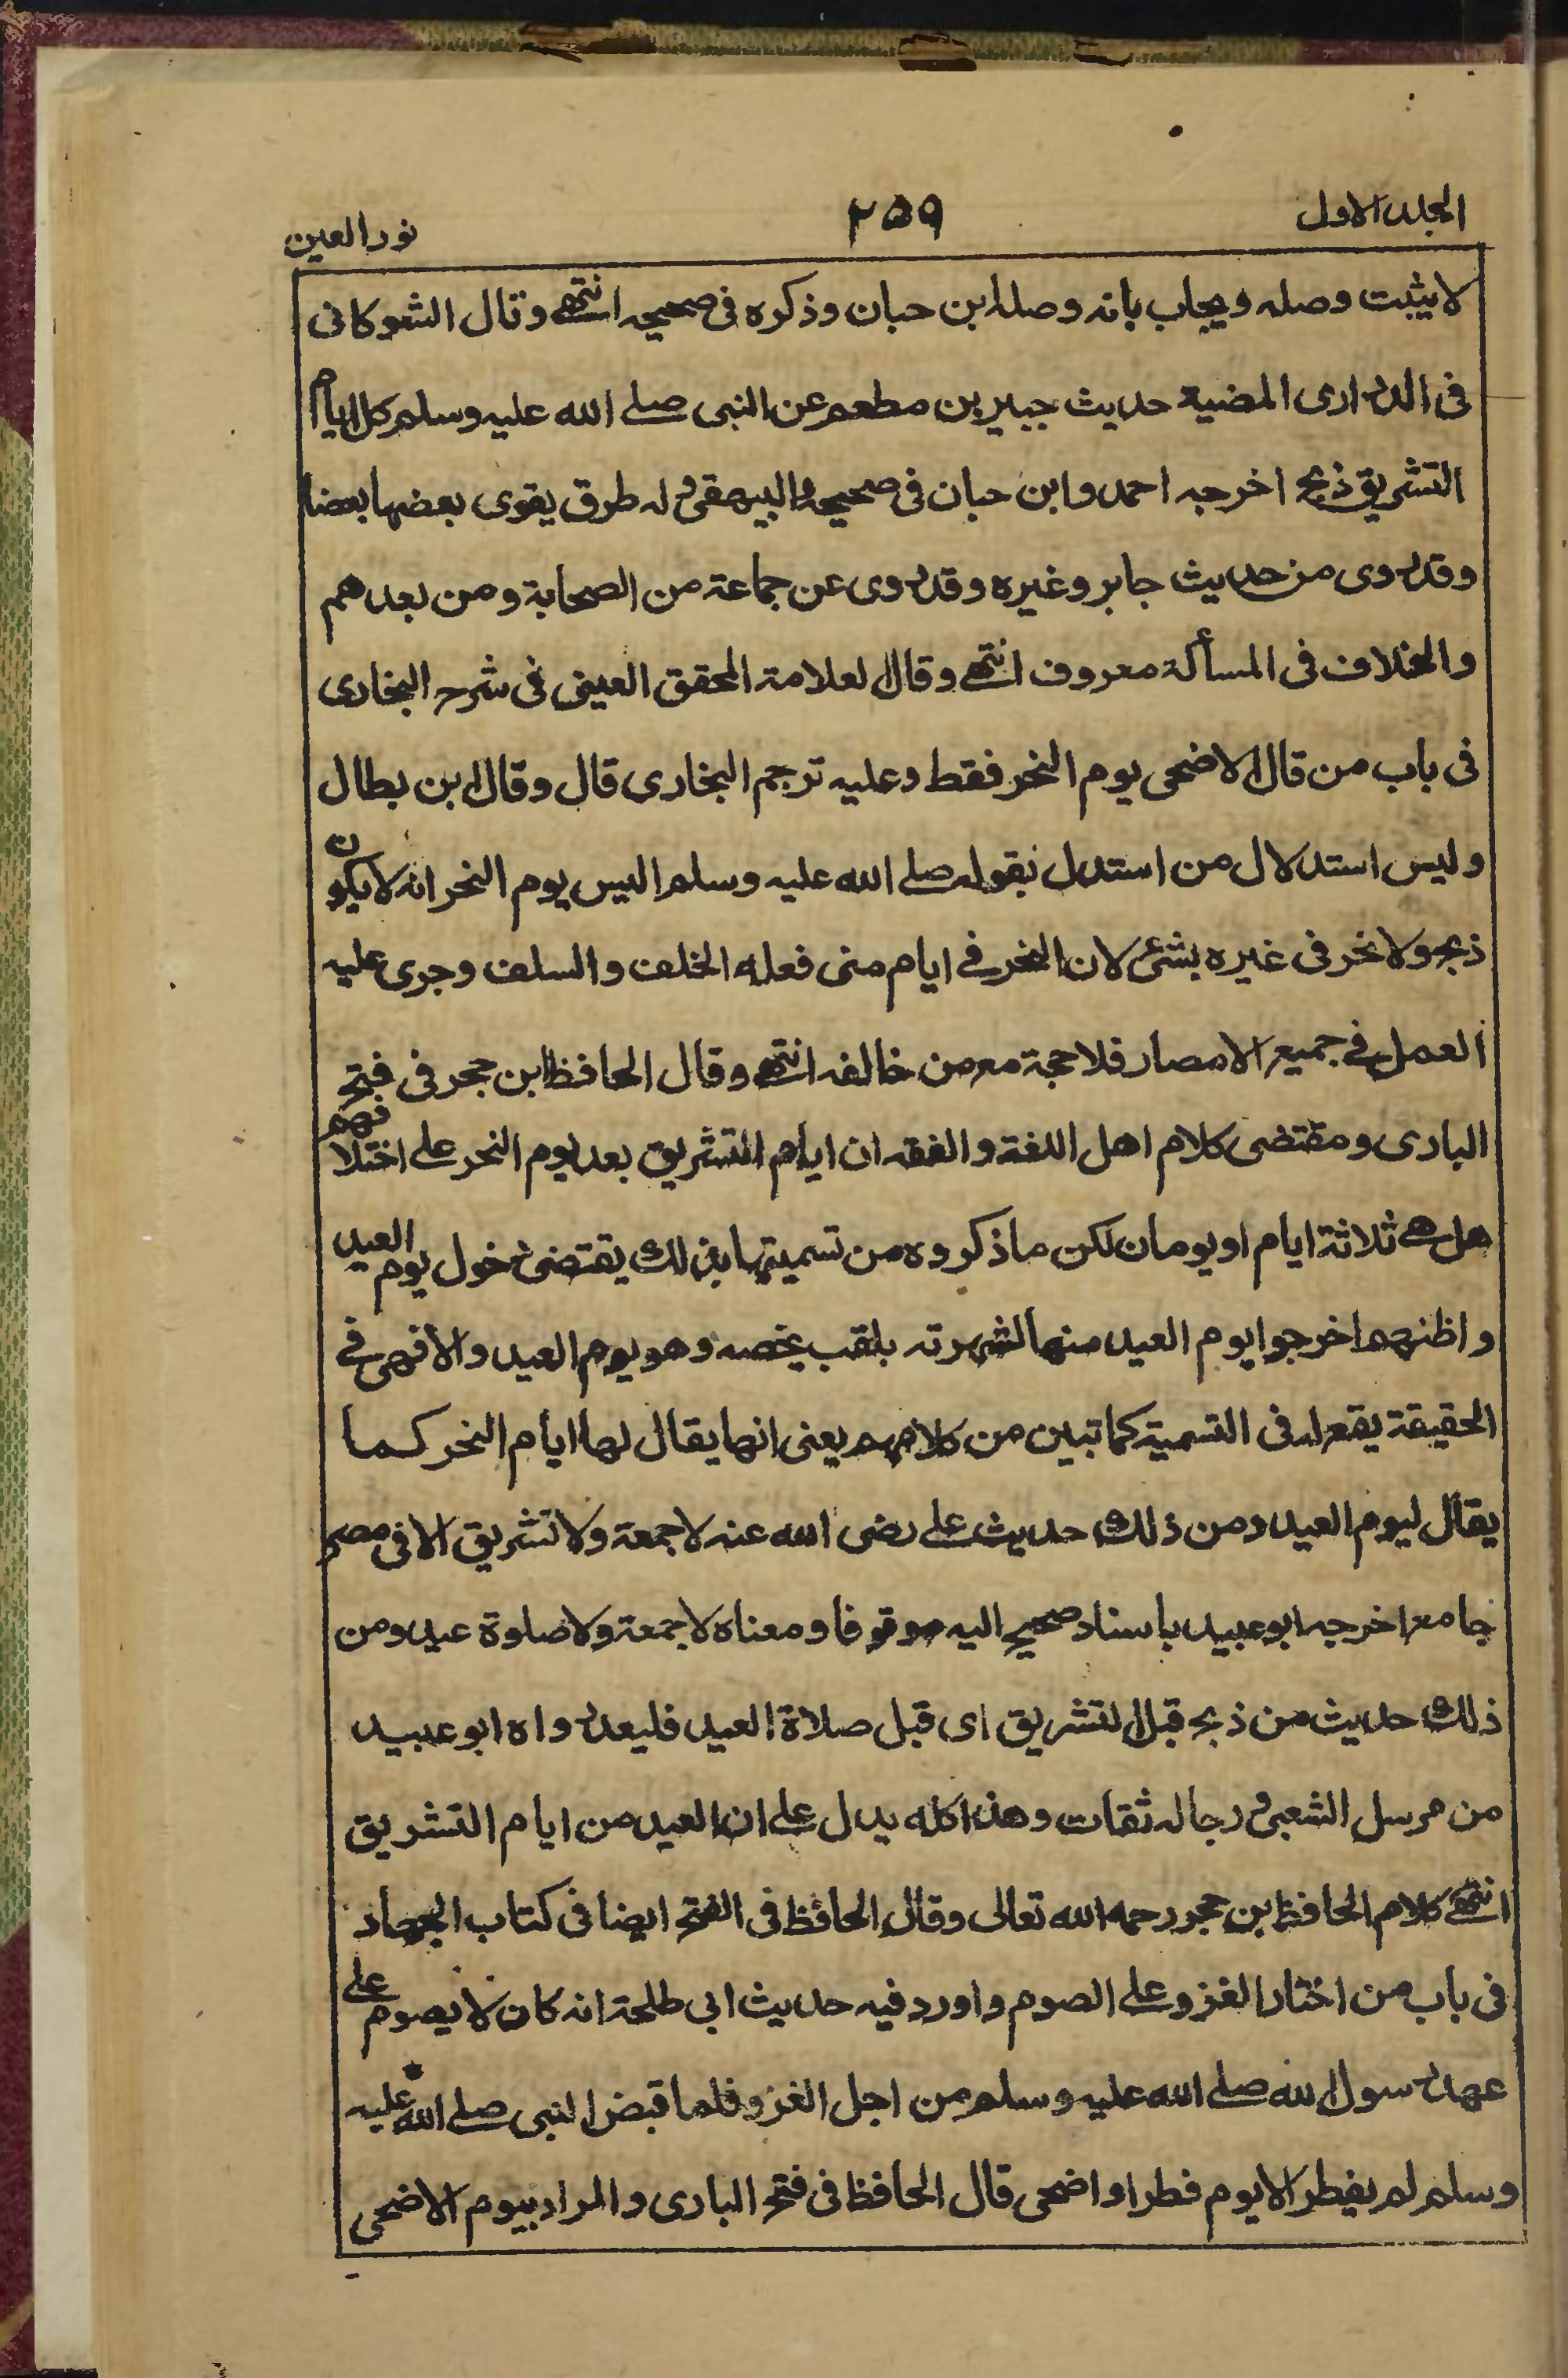 المجلد الاول
٢٥٩
نور العين
لا يثبت وصله ويجاب بانه وصله ابن حبان وذكره فى صحيحه انتهى وقال الشوكانى
فى الدرارى المضية حديث جبير بن مطعم عن النبى صلى الله عليه وسلم كل ايام
التشريق ذبح اخرجه احمد وابن حبان فى صحيحه والبيهقى وله طرق يقوى بعضها بعضا
وقد روى من حديث جابر وغيره وقد روى عن جماعة من الصحابة ومن بعدهم
والخلاف فى المسألة معروف انتهى وقال العلامة المحقق العينى فى شرح البخارى
فى باب من قال الاضحى يوم النحر فقط وعليه ترجم البخارى قال وقال ابن بطال
وليس استدلال من استدل بقوله صلى الله عليه وسلم اليس يوم النحر انه لا يكون
ذبح ولا نحر فى غيره بشئ لان النحر فى ايام منى فعله الخلف والسلف وجرى عليه
العمل فى جميع الامصار فلا حجة مع من خالفه انتهى وقال الحافظ ابن حجر فى فتح
البارى ومقتضى كلام اهل اللغة والفقه ان ايام التشريق بعد يوم النحر على اختلافهم
هل هى ثلاثة ايام او يومان لكن ما ذكروه من تسميتها بذلك يقتضى دخول يوم العيد
واظنهم اخرجوا يوم العيد منها لشهرته بلقب يخصه وهو يوم العيد والا فهى فى
الحقيقة يقع له فى التسمية كما تبين من كلامهم يعنى انها يقال لها ايام النحر كما
يقال ليوم العيد ومن ذلك حديث على رضى الله عنه لا جمعة ولا تشريق الا فى مصر
جامع اخرجه ابو عبيد باسناد صحيح اليه موقوفا ومعناه لا جمعة ولا صلوة عيد ومن
ذلك حديث من ذبح قبل التشريق اى قبل صلاة العيد فليعد رواه ابو عبيد
من مرسل الشعبى ورجاله ثقات وهذا كله يدل على ان العيد من ايام التشريق
انتهى كلام الحافظ ابن حجر رحمه الله تعالى وقال الحافظ فى الفتح ايضا فى كتاب الجهاد
فى باب من اختار الغزو على الصوم واورد فيه حديث ابى طلحة انه كان لا يصوم على
عهد رسول الله صلى الله عليه وسلم من اجل الغزو فلما قبض النبى صلى الله عليه
وسلم لم يفطر الا يوم فطر او اضحى قال الحافظ فى فتح البارى والمراد بيوم الاضحى